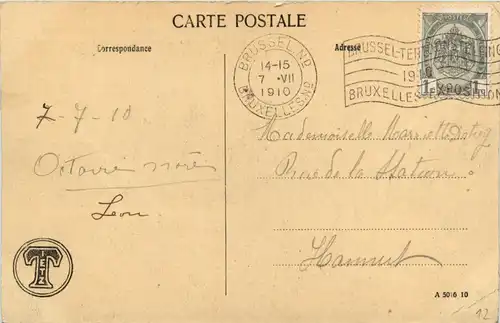 CARTE POSTALE
Correspondance
Adresse
BRUSSEL.Nd
14-15
7 ·VII
1910
BRUXELLES.Nd
BRUSSEL-TENTOONSTELLING
BRUXELLES-EXPOSITION
1
1
7-7-10
Octavie
Léon
Mademoiselle Mariette
de la Station
Hannut
T
A 5016 10
12